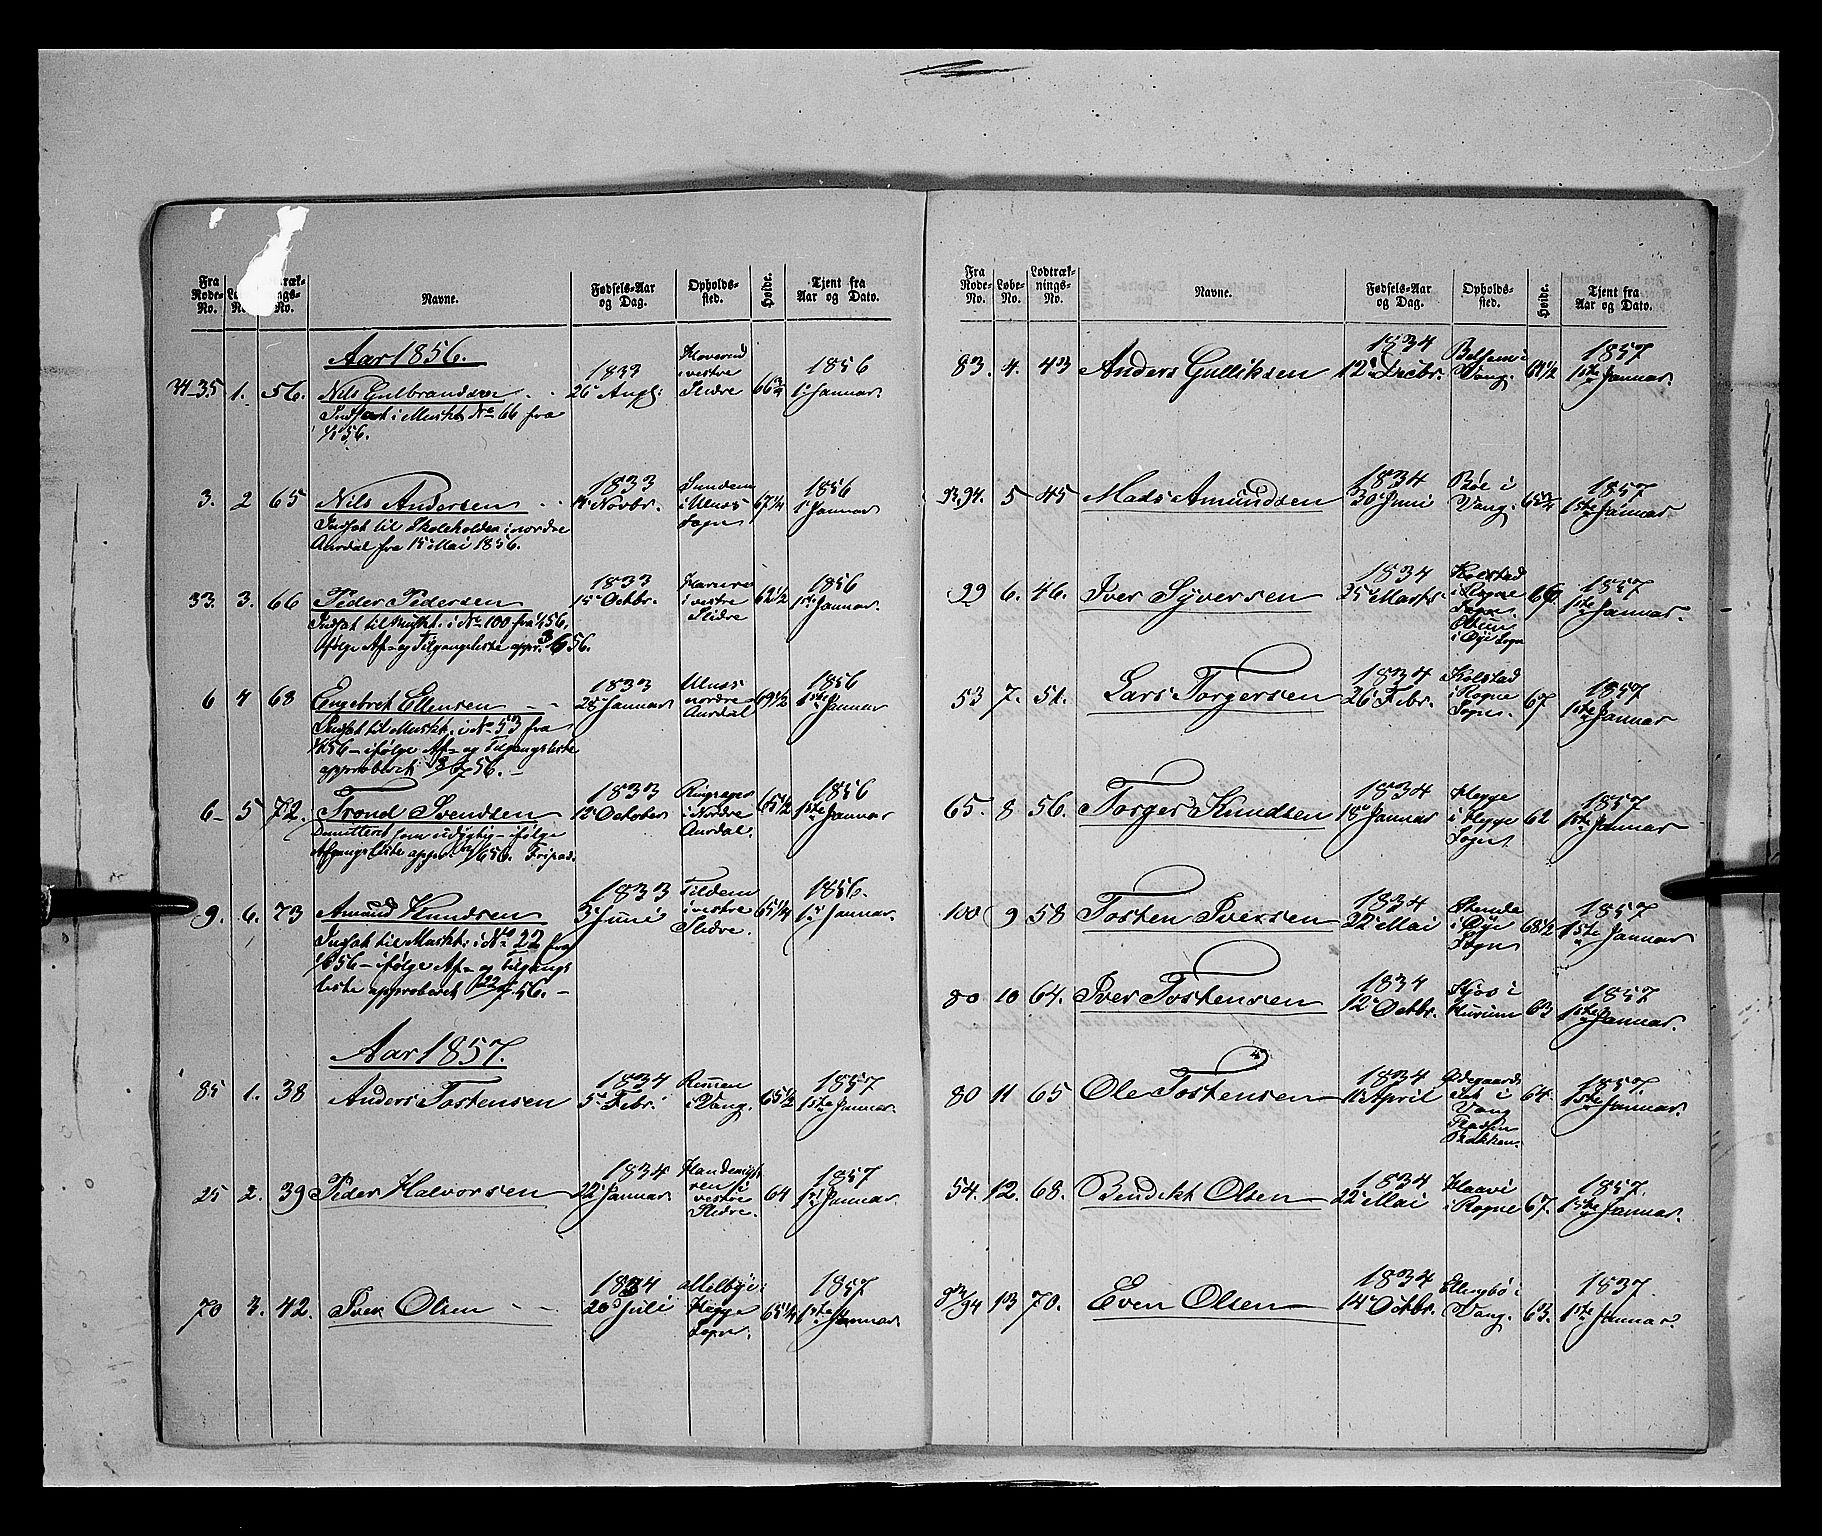 Fra Rode-No.
No.
Lodtræknings-No.
Navne.
Fødsels-Aar og Dag.
Opholds-sted.
Høide.
Tjent fra Aar og Dato.
Aar 1856.
34-35 1. 56. Nils Gulbrandsen 1833 26 Augt: i vestre Slidre 66 3/4 1856 1 Januar.
Indsat i Muskt. No 66 fra
1/1 56.
3. 2 65 Nils Andersen 1833 Novbr. i Ulnæs Sogn 67 1/4 1856 1 Januar
Indsat til Skoleholder i nordre
Aurdal fra 15 Mai 1856.
33. 3. 66 Peder Pedersen 1833 15 Octbr. i vestre Slidre 62 1/2 1856 1ste Januar.
Indsat til Muskt. i No 100 fra 1/1 56.
ifølge Af- og Tilgangsliste appr. 56.
6 4 68 Engebret Ellensen 1833 28 Januar Ulnæs nordre Aurdal 69 1/2 1856 1ste Januar
Indsat til Muskt. i No 53 fra
56 - ifølge Af- og Tilgangsliste
approberet 56. -
6- 5 72. Trond Svendsen 1833 12 October i Nordre Aurdal. 65 1/2 1856 1ste Januar
Dimitteret som udygtig - ifølge
Afgangsliste appr. 56.
9. 6. 73 Amund Knudsen 1833 3 Juni i vestre Slidre. 65 1/4 1856. 1 Januar.
Indsat til Muskt. i No 22 fra
56 - ifølge Af- og Tilgangs
liste approberet 56. -
Aar 1857.
85 1. 38 Anders Tostensen 1834 5 Febr. i Vang. 65 1/2 1857 1ste Januar.
25 2. 39 Peder Halvorsen 1834 22 Januar i vestre Slidre. 64 1857 1st Januar
70 3. 42. Iver Olsen 1834 20 Juli Melbye i Hegge Sogn. 65 1/4 1857 1ste Januar
Fra Rode-No.
Løbe-No.
Lodtræknings-No.
Navne.
Fødsels-Aar og Dag.
Opholds-sted.
Høide.
Tjent fra Aar og Dato.
83. 4. 43 Anders Gulliksen 1834 12 Decbr. Vang. 1857 1ste Januar.
93.94. 5 45 Mads Amundsen 1834 30 Juni Bøe i Vang. 65 3/4 1857 1ste Januar
99 6. 46. Iver Syversen 1834 25 Marts Kolstad i Rogne Sogn. i Øye Sogn 66. 1857 1ste Januar.
53 7. 51. Lars Torgersen 1834 26 Febr. Kolstad i Rogne Sogn. 67 1857 1ste Januar
65. 8 56. Torger Knudsen 1834 18 Januar Hegge i Hegge Sogn 62 1857 1ste Januar
100 9 58 Tosten Iversen 1834 22 Mai i Øye Sogn 68 1/2 1857 1ste Januar
80 10 64. Iver Tostensen 1834 12 Octbr. i Hurum 63 1857 1ste Januar.
80 11 65 Ole Tostensen 1834 11 April Ødegaards Eiet i Vang 64. 1857 1ste Januar.
54. 12. 68. Bendikt Olsen 1834 22 Mai i Rogne 67. 1857. 1ste Januar.
93/94 13 70. Even Olsen 1834 14 Octbr. Ellingbø i Vang. 63. 1837. 1ste Januar.